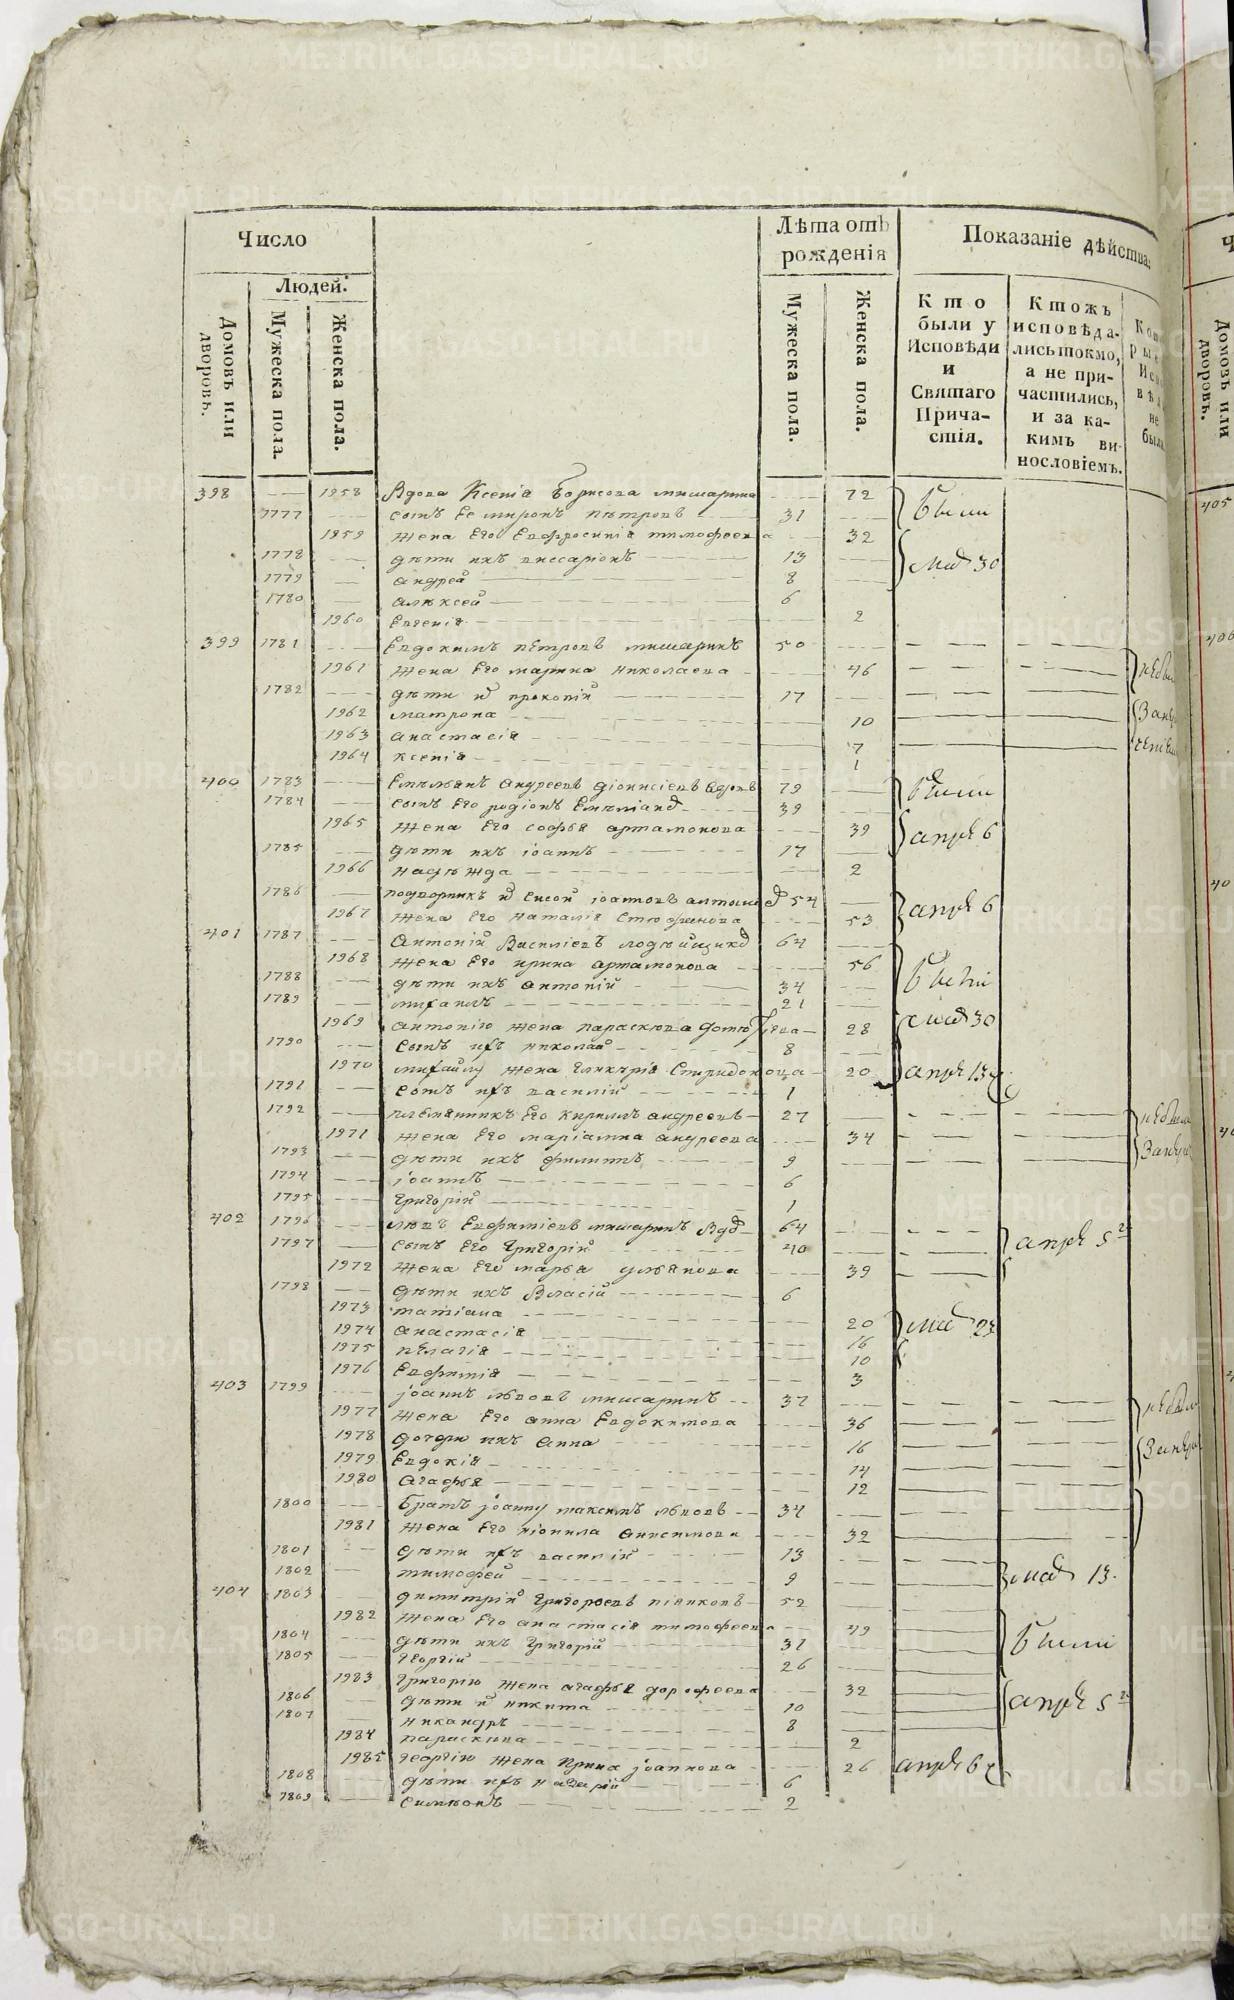 Число
Лѣта отъ рожденія
Показаніе дѣйства.
Людей.
Домовъ или дворовъ.
Мужеска пола.
Женска пола.
Мужеска пола.
Женска пола.
Кто были у Исповѣди и Святаго Причастія.
Ктожъ исповѣдались токмо, а не причастились, и за какимъ винословіемъ.
398 1958 Вдова Ксенія Борисова мишарина 72 были
1777 сынъ Ее миронъ пѣтровъ 31
1959 жена Его Евфросинія тимофеева 32
1778 дѣти ихъ виссаріонъ 13 маія 30
1779 андрей 8
1780 алѣксей 6
1960 Евгенія 2
399 1781 Евдокимъ пѣтровъ мишаринъ 50
1961 жена Его марина николаева 46
1782 дѣти их прокопій 17
1962 матрона 10
1963 анастасія 7
1964 ксенія 1
400 1783 Емѣльянъ андреевъ діонисіевъ вдовъ 79 были
1784 сынъ Его родіонъ 39
1965 жена Его софья артамонова 39 апрѣ 6
1785 дѣти ихъ іоаннъ 17
1966 надѣжда 2
1786 подворникъ 54
1967 жена Его наталія 53 апрѣ 6
401 1787 антоній Василіевъ 64
1968 жена Его ирина артамонова 56
1788 дѣти ихъ антоній 34 были
1789 михаилъ 21
1969 антонію жена параскева 28 маія 30
1790 сынъ ихъ николай 8
1970 михайлу жена гликѣрія Спиридонова 20 апрѣ 13
1791 сынъ ихъ василій 1
1792 племянникъ Его кирилъ андреевъ 27
1971 жена Его маріамна андреева 34
1793 дѣти ихъ филиппъ 9
1794 іоаннъ 6
1795 григорій 1
402 1796 левъ Евфиміевъ мишаринъ Вдов 64
1797 сынъ Его григорій 40 апрѣ 5
1972 жена Его марья ульянова 39
1798 дѣти ихъ Власій 6
1973 татіана 20
1974 анастасія 16 маія 23
1975 пѣлагія 10
1976 Евфимія 3
403 1799 іоаннъ львовъ мишаринъ 37
1977 жена Его анна Евдокимова 36
1978 дочери ихъ анна 16
1979 Евдокія 14
1980 агафья 12
1800 братъ іоанну максимъ львовъ 34
1981 жена Его нионила анисимова 32
1801 дѣти ихъ василій 13
1802 тимофей 9 маія 13
404 1803 димитрій григорьевъ 52
1982 жена Его анастасія тимофеева 49
1804 дѣти ихъ григорій 31 были
1805 георгій 26
1983 григорію жена агафья дорофеева 32
1806 дѣти их никита 10 апрѣ 5
1807 никандръ 8
1984 параскива 2
1985 георгію жена ирина іоаннова 26 апрѣ 6
1808 дѣти ихъ назарій 6
1809 симѣонъ 2
405